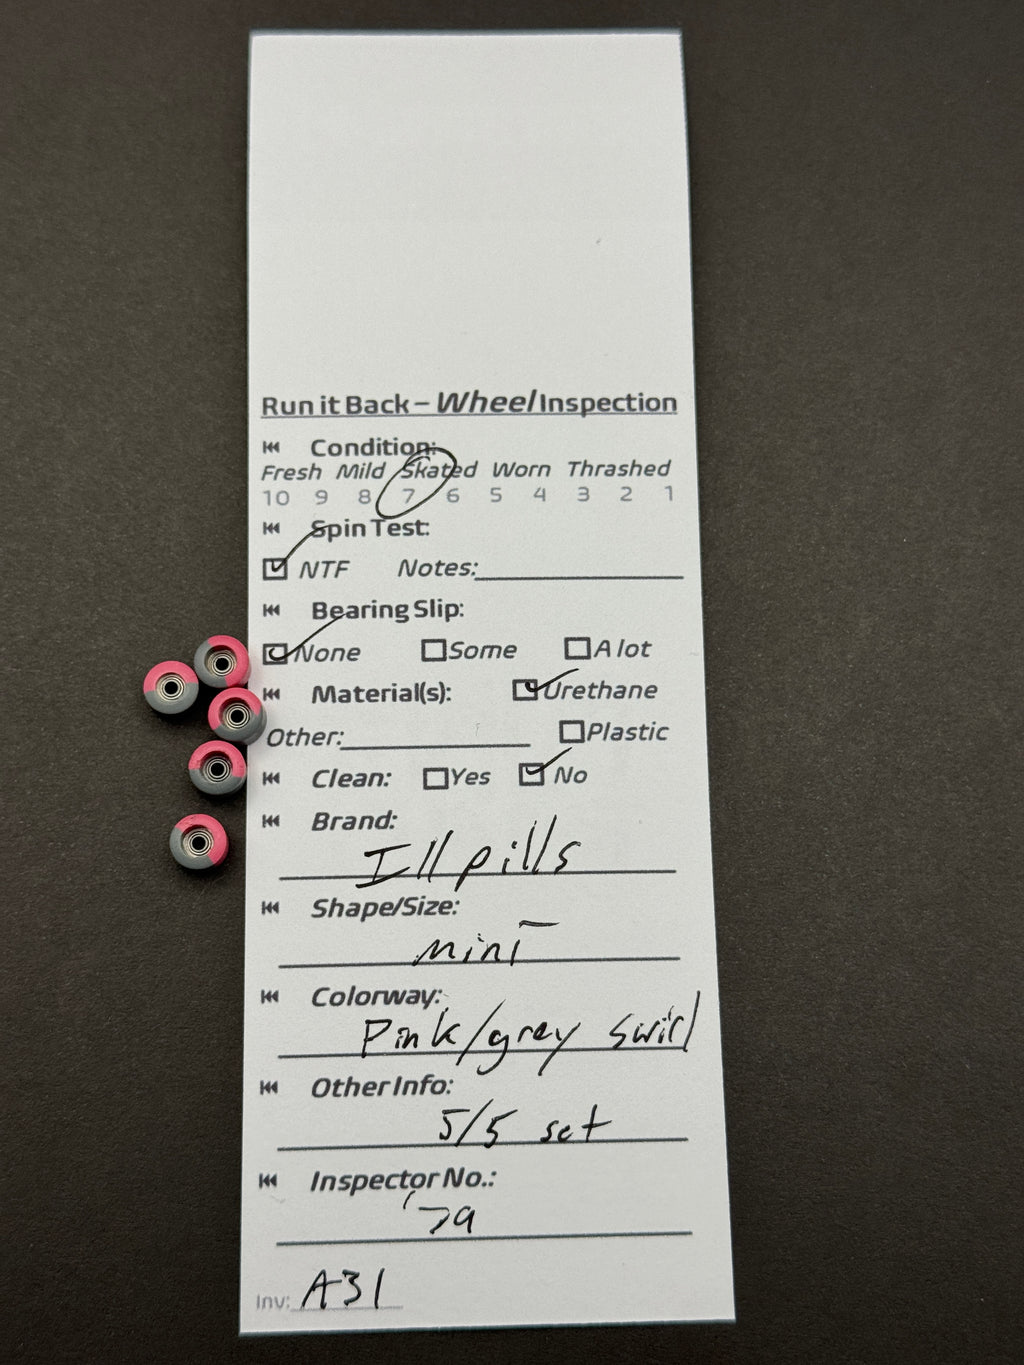 Run it Back – Wheel Inspection
Condition:
Fresh Mild Skated Worn Thrashed
10 9 8 7 6 5 4 3 2 1
Spin Test:
NTF Notes:
Bearing Slip:
None Some A lot
Material(s): Urethane
Other: Plastic
Clean: Yes No
Brand:
Ill pills
Shape/Size:
mini
Colorway:
Pink/grey swirl
Other Info:
5/5 set
Inspector No.:
'79
Inv: A31